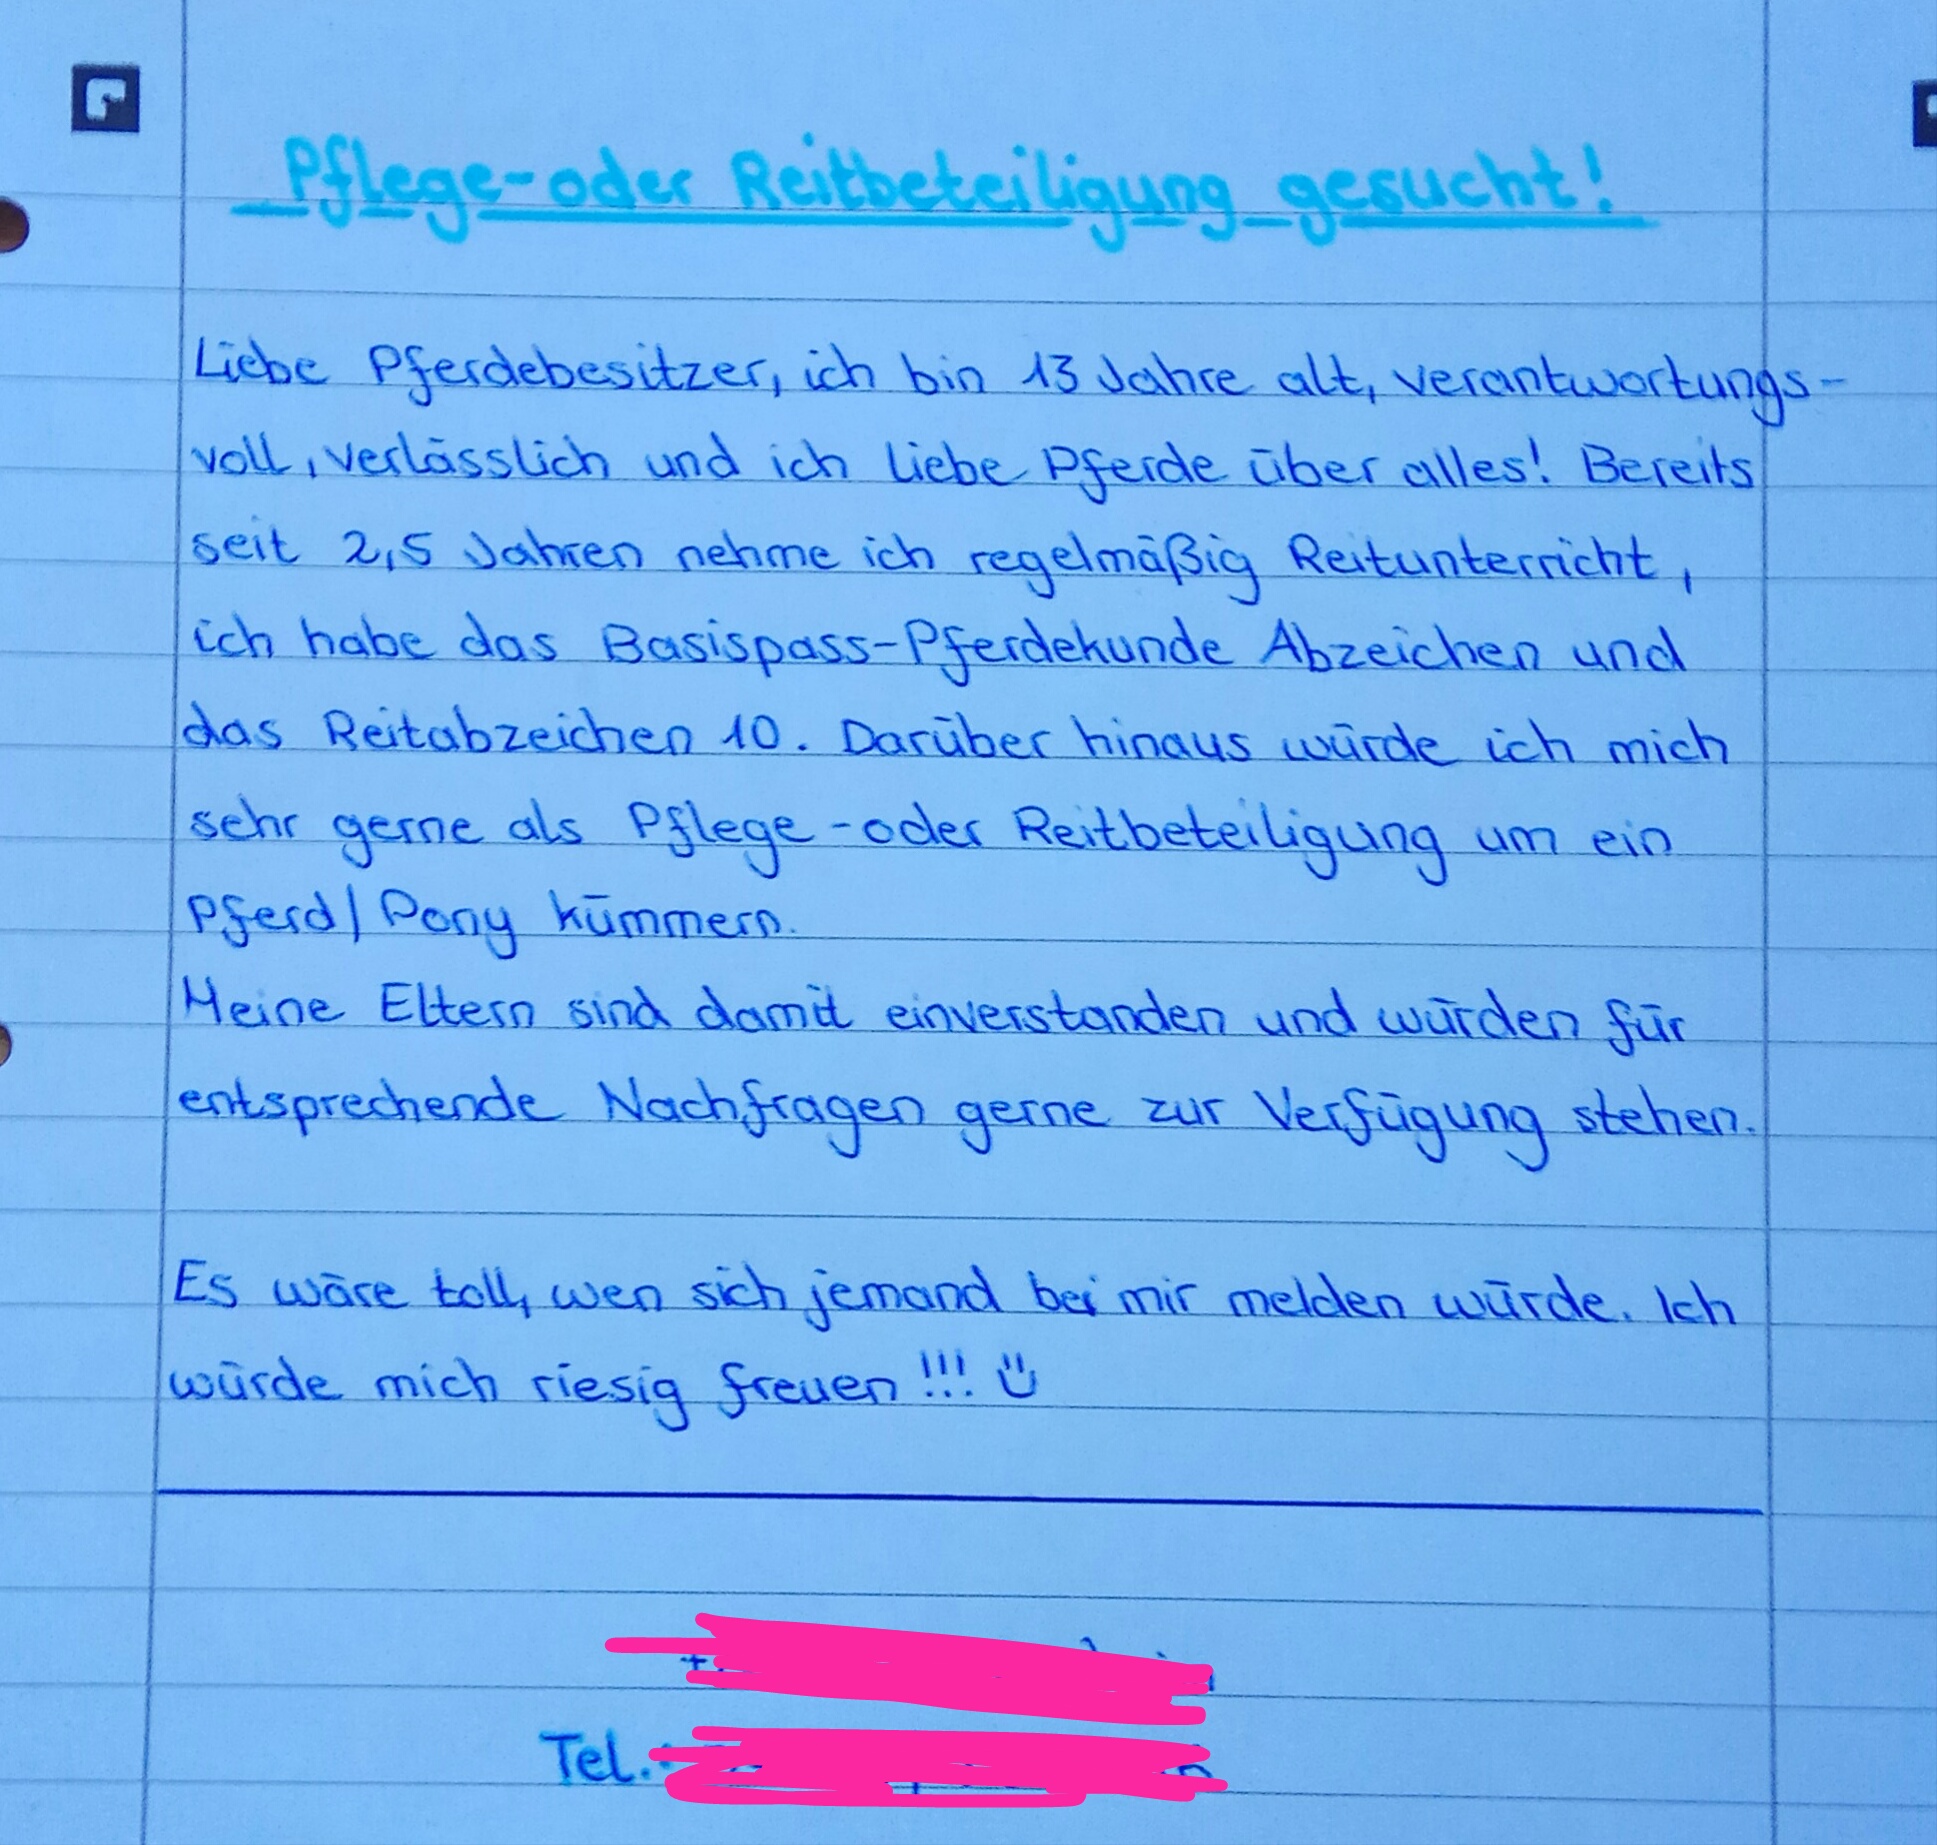 Pflege-oder Reitbeteiligung gesucht!
Liebe Pferdebesitzer, ich bin 13 Jahre alt, verantwortungs-
voll, verlässlich und ich liebe Pferde über alles! Bereits
seit 2,5 Jahren nehme ich regelmäßig Reitunterricht,
ich habe das Basispass-Pferdekunde Abzeichen und
das Reitabzeichen 10. Darüber hinaus würde ich mich
sehr gerne als Pflege-oder Reitbeteiligung um ein
Pferd/Pony kümmern.
Meine Eltern sind damit einverstanden und würden für
entsprechende Nachfragen gerne zur Verfügung stehen.
Es wäre toll, wen sich jemand bei mir melden würde. Ich
würde mich riesig freuen!!! Ü
Tel.: